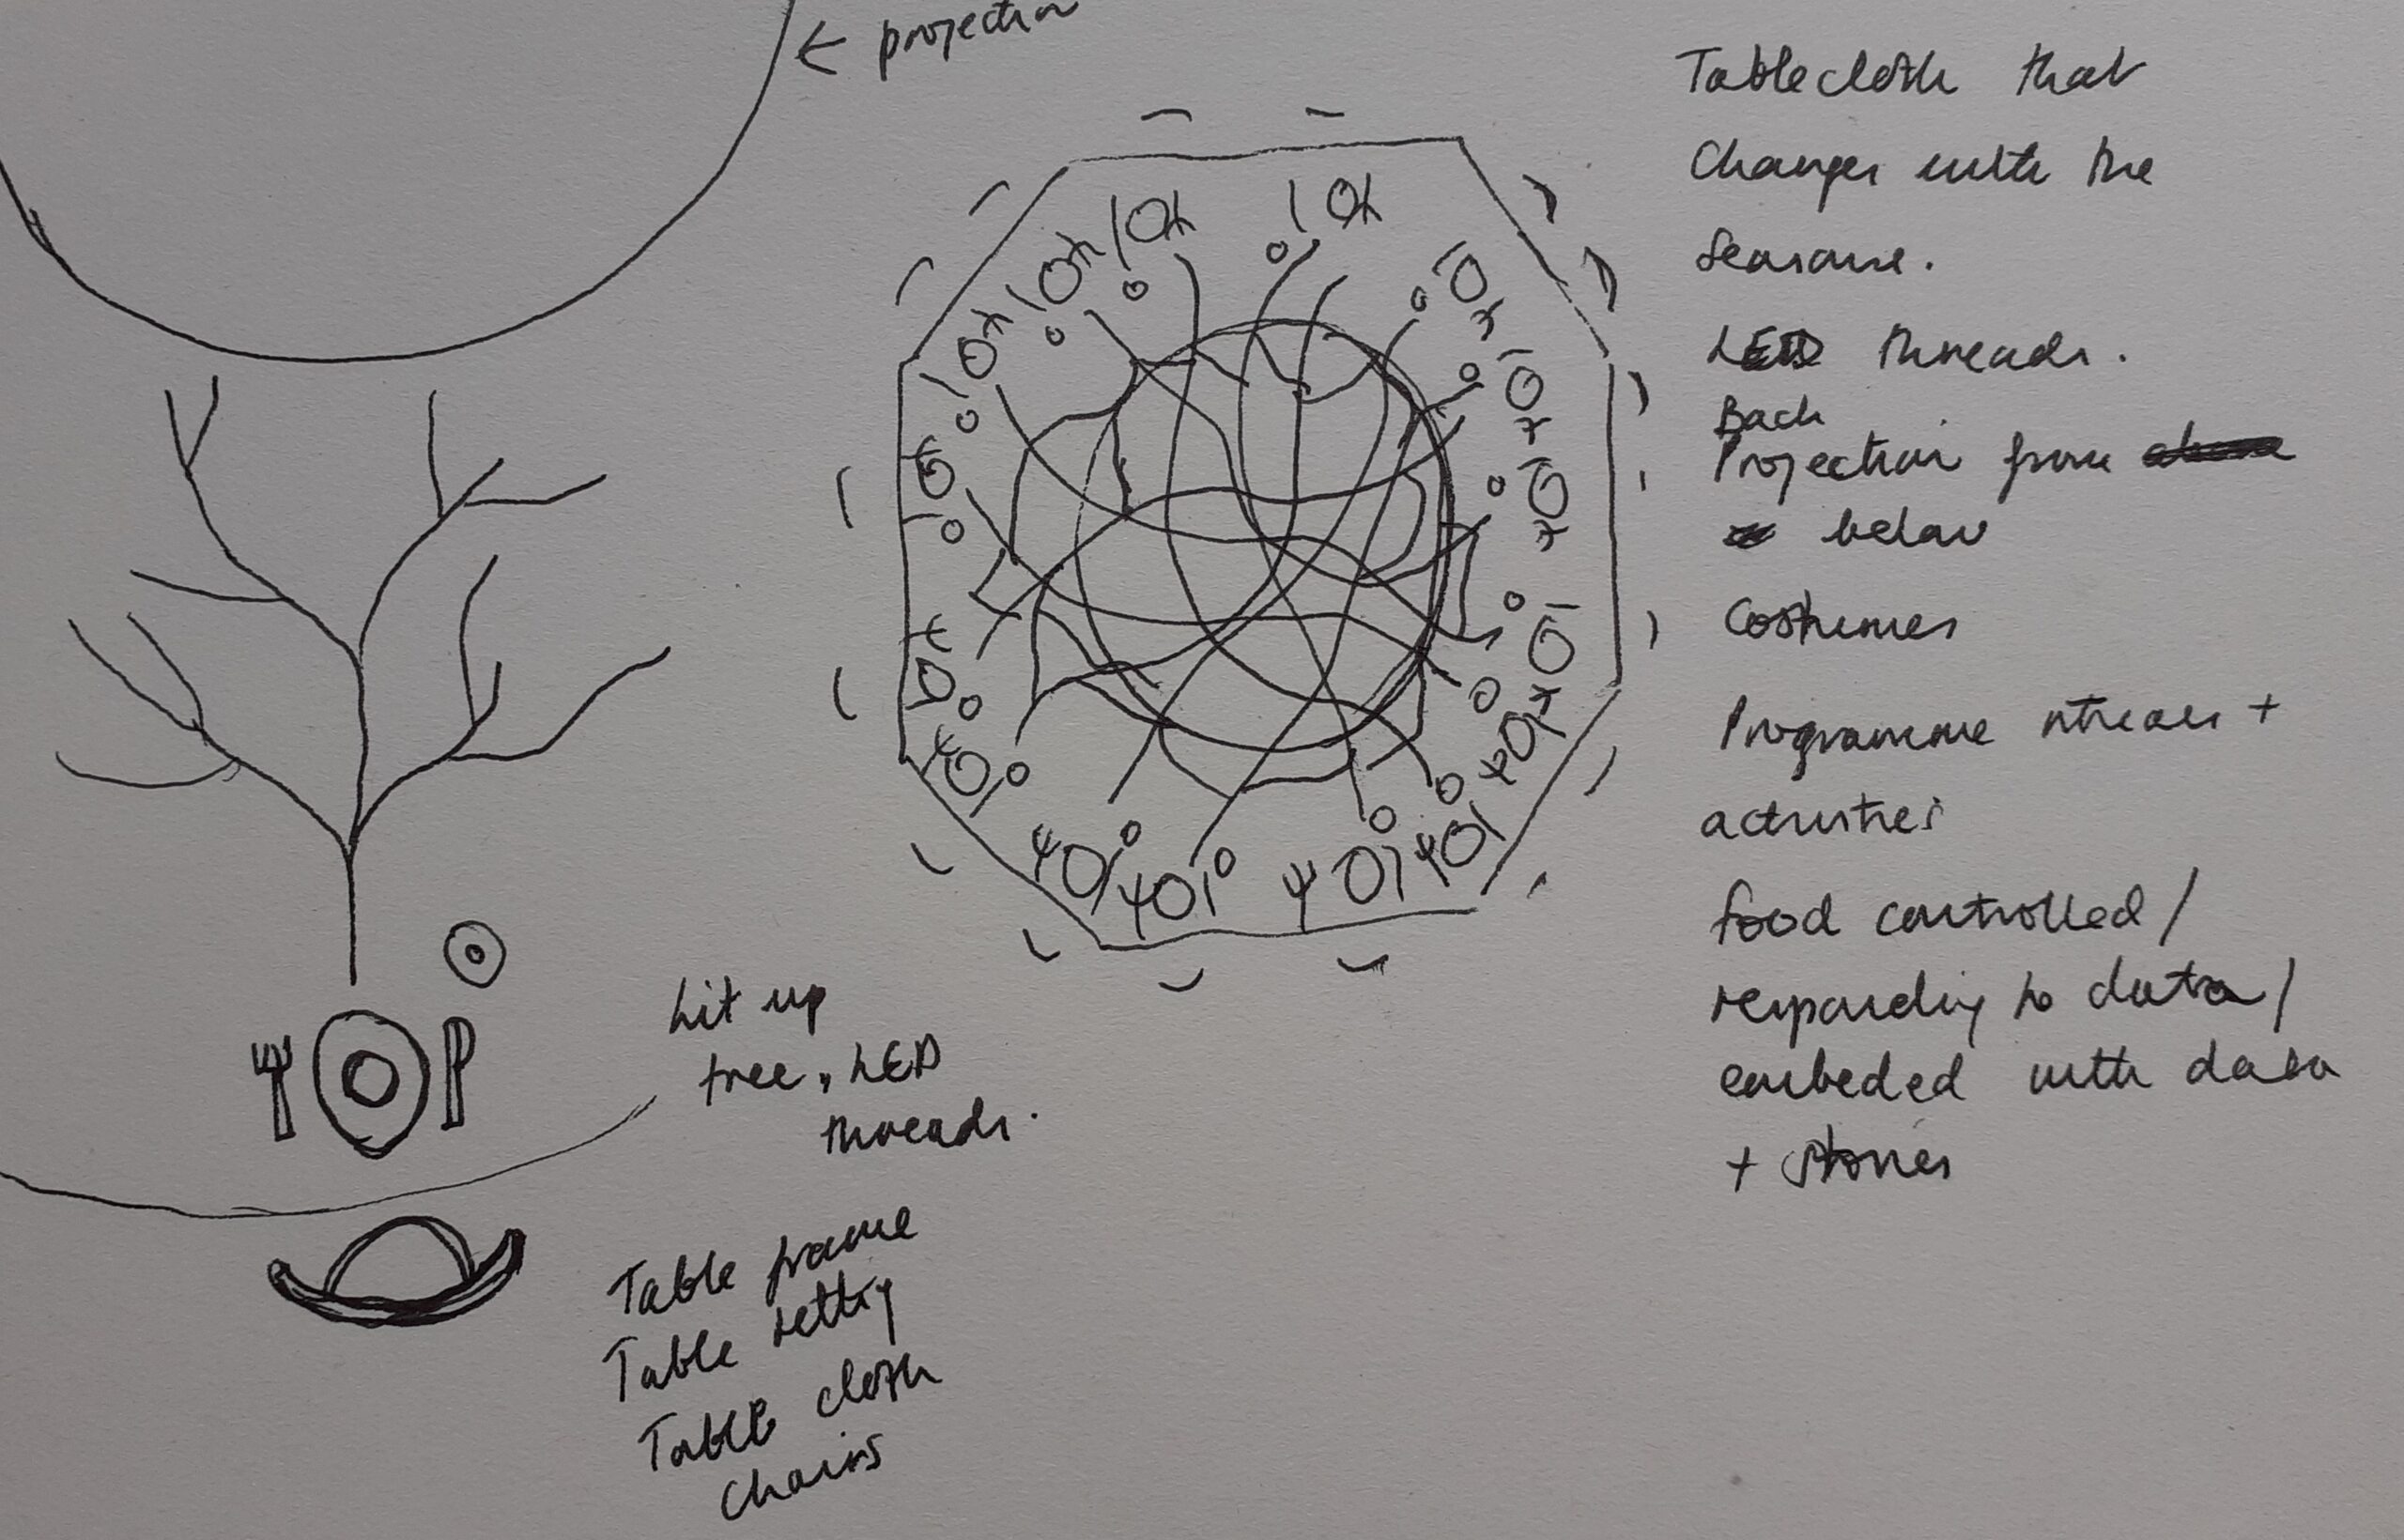 ← projection
Tablecloth that
Changes with the
Seasons.
LED threads.
Back
Projection from
below
Costumes
Programme streams +
activities
food controlled /
responding to data /
embeded with data
+ stories
Lit up
tree, LED
threads.
Table frame
Table setting
Table cloth
Chairs